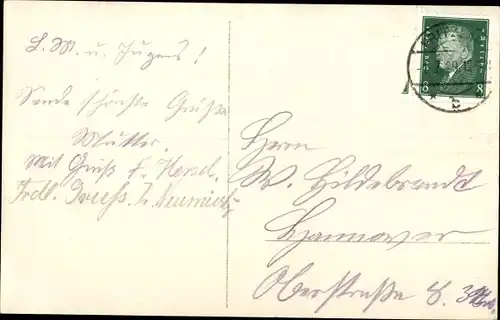 L. M. u. Jugend!
Sende schönste Grüße
Mutter.
Mit Gruß
Frdl. Gruss
8
8
b
Herrn
W. Hildebrandt
Hannover
Oberstraße 8. 3